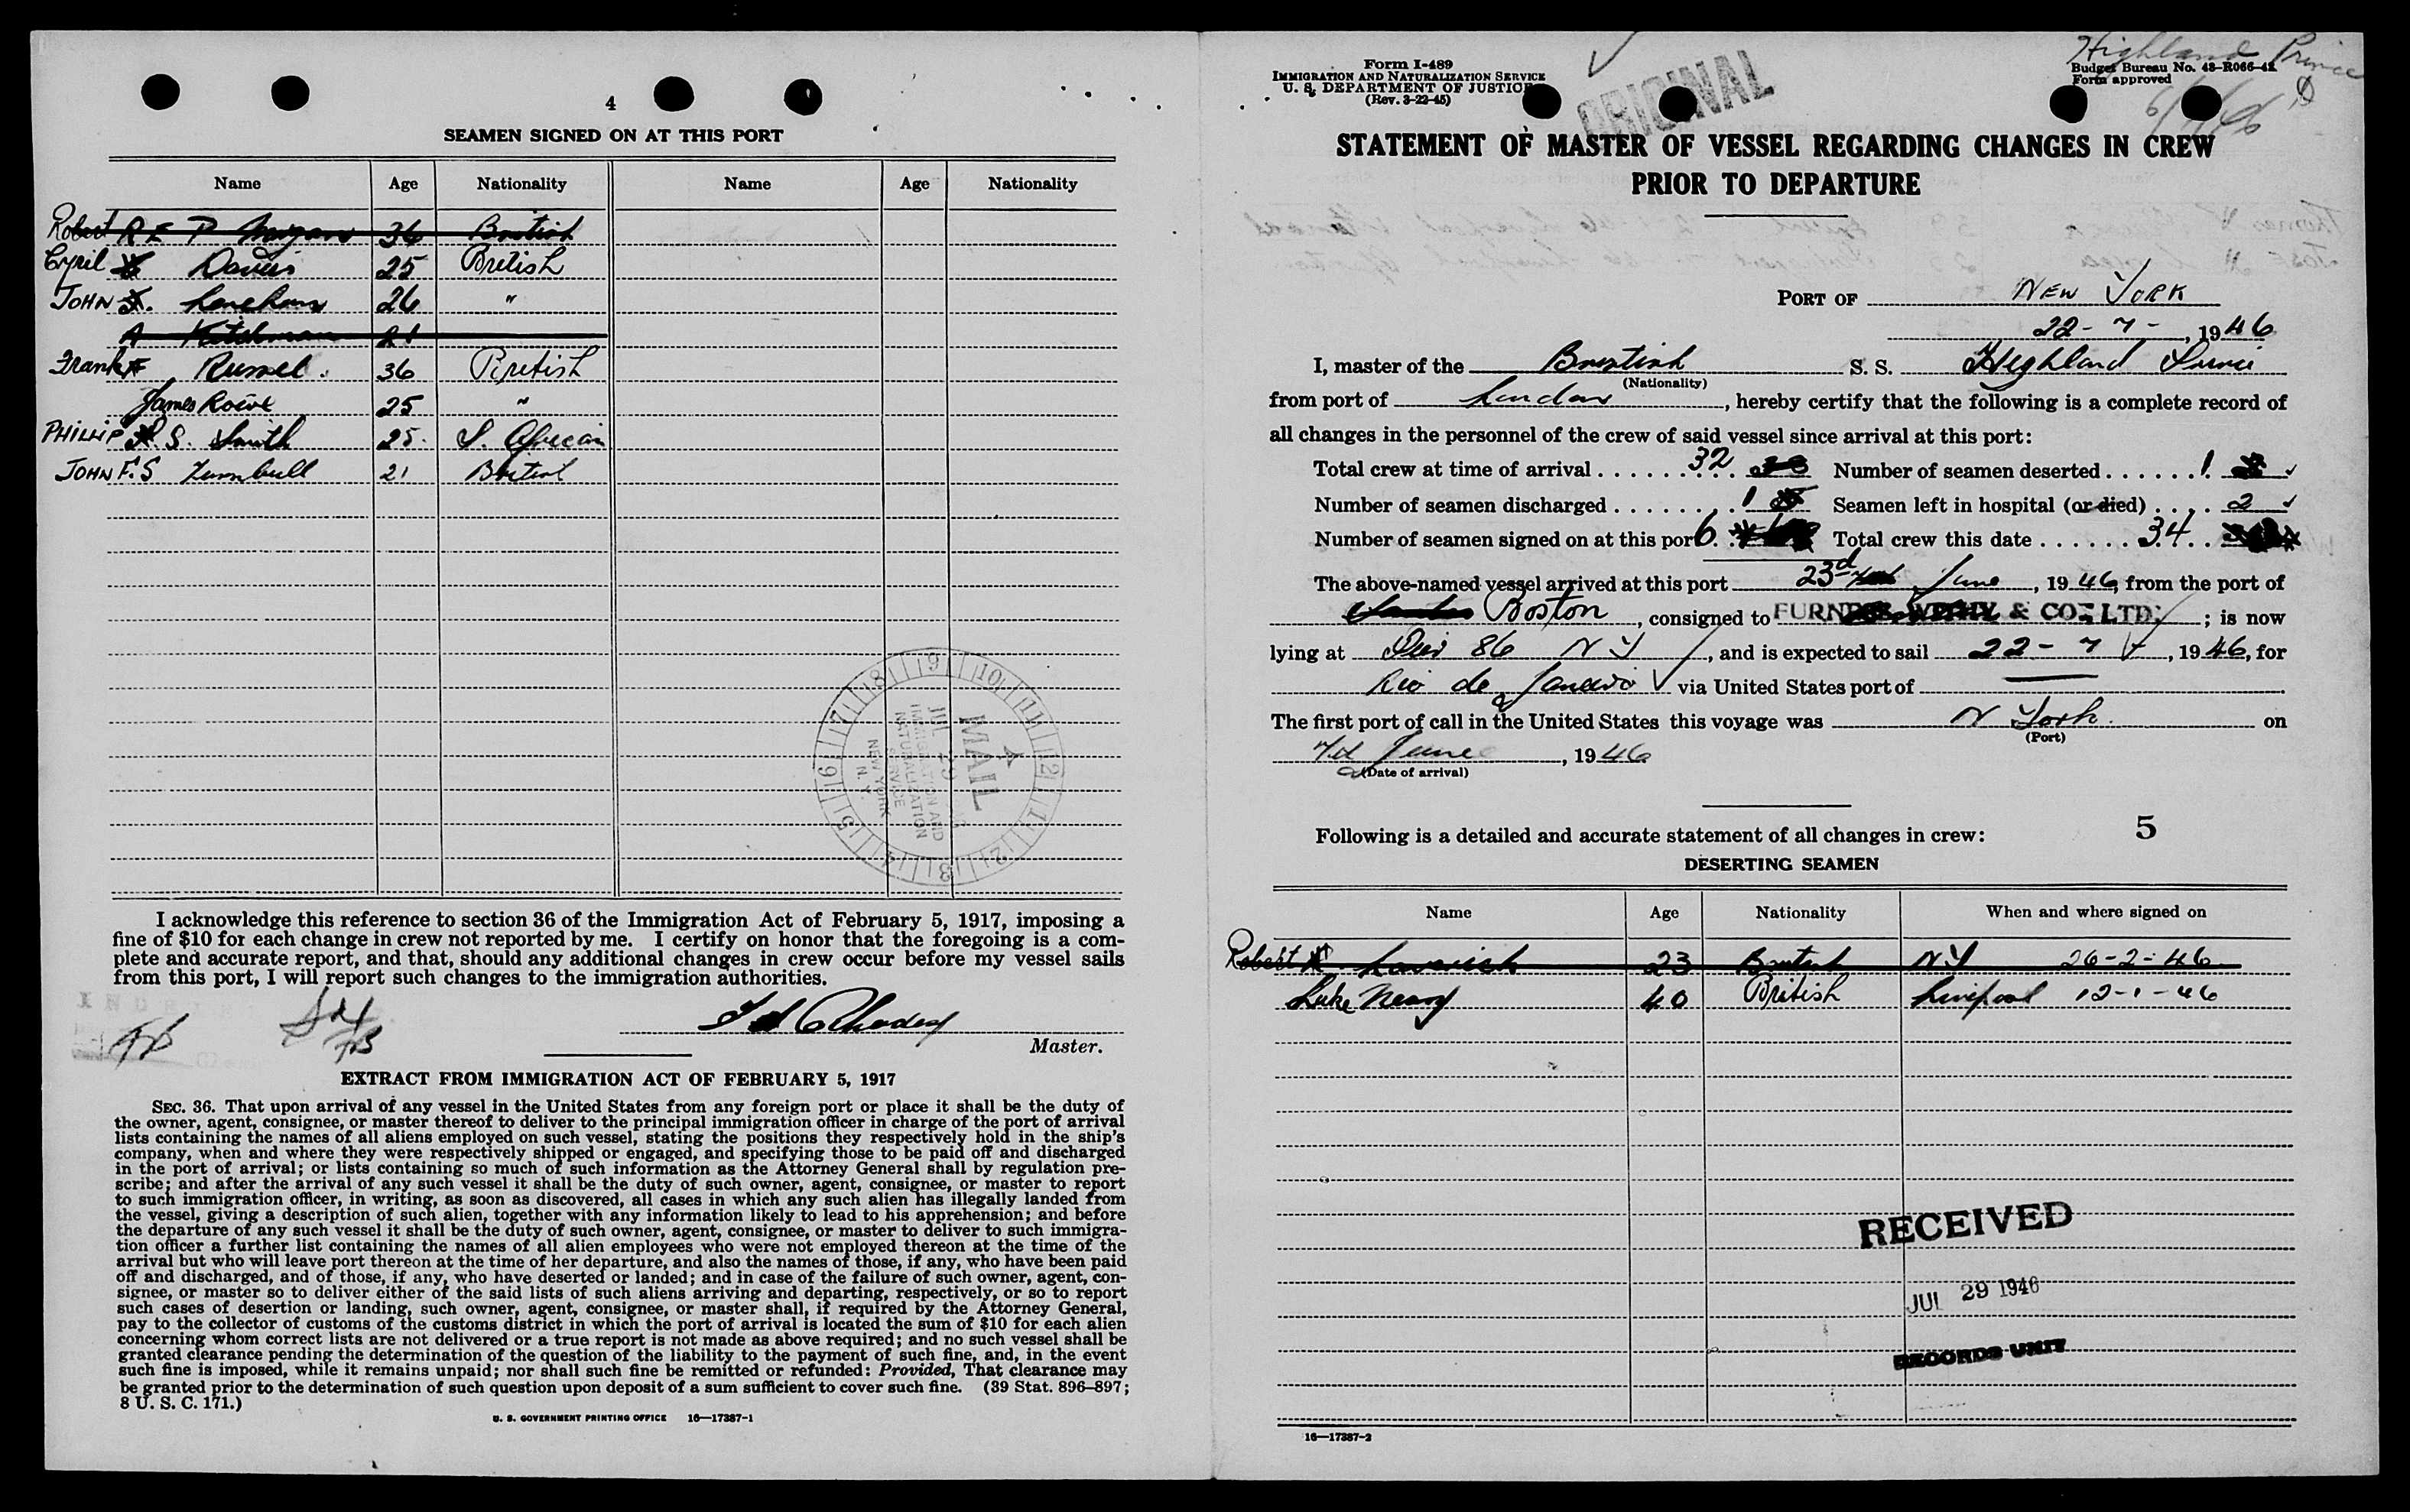 4
SEAMEN SIGNED ON AT THIS PORT
Name Age Nationality Name Age Nationality
Robert R E P Morgan 36 British
Cyril Davies 25 British
JOHN Lenehan 26 "
A Kitchman 21
Frank F Russel. 36 British
James Rowe 25 "
PHILLIP S. Smith 25. S. African
JOHN F.S Turnbull 21 British
A
MAIL
JUL 29
IMMIGRATION AND
NATURALIZATION
SERVICE
NEW YORK
N. Y.
I acknowledge this reference to section 36 of the Immigration Act of February 5, 1917, imposing a
fine of $10 for each change in crew not reported by me. I certify on honor that the foregoing is a com-
plete and accurate report, and that, should any additional changes in crew occur before my vessel sails
from this port, I will report such changes to the immigration authorities.
Rhodes
Master.
EXTRACT FROM IMMIGRATION ACT OF FEBRUARY 5, 1917
SEC. 36. That upon arrival of any vessel in the United States from any foreign port or place it shall be the duty of
the owner, agent, consignee, or master thereof to deliver to the principal immigration officer in charge of the port of arrival
lists containing the names of all aliens employed on such vessel, stating the positions they respectively hold in the ship's
company, when and where they were respectively shipped or engaged, and specifying those to be paid off and discharged
in the port of arrival; or lists containing so much of such information as the Attorney General shall by regulation pre-
scribe; and after the arrival of any such vessel it shall be the duty of such owner, agent, consignee, or master to report
to such immigration officer, in writing, as soon as discovered, all cases in which any such alien has illegally landed from
the vessel, giving a description of such alien, together with any information likely to lead to his apprehension; and before
the departure of any such vessel it shall be the duty of such owner, agent, consignee, or master to deliver to such immigra-
tion officer a further list containing the names of all alien employees who were not employed thereon at the time of the
arrival but who will leave port thereon at the time of her departure, and also the names of those, if any, who have been paid
off and discharged, and of those, if any, who have deserted or landed; and in case of the failure of such owner, agent, con-
signee, or master so to deliver either of the said lists of such aliens arriving and departing, respectively, or so to report
such cases of desertion or landing, such owner, agent, consignee, or master shall, if required by the Attorney General,
pay to the collector of customs of the customs district in which the port of arrival is located the sum of $10 for each alien
concerning whom correct lists are not delivered or a true report is not made as above required; and no such vessel shall be
granted clearance pending the determination of the question of the liability to the payment of such fine, and, in the event
such fine is imposed, while it remains unpaid; nor shall such fine be remitted or refunded: Provided, That clearance may
be granted prior to the determination of such question upon deposit of a sum sufficient to cover such fine. (39 Stat. 896–897;
8 U. S. C. 171.)
U. S. GOVERNMENT PRINTING OFFICE 16—17387-1
Form I-489
IMMIGRATION AND NATURALIZATION SERVICE
U. S. DEPARTMENT OF JUSTICE
(Rev. 3-22-45)
ORIGINAL
Highland Prince
Budget Bureau No. 43-R066-42
Form approved
STATEMENT OF MASTER OF VESSEL REGARDING CHANGES IN CREW
PRIOR TO DEPARTURE
PORT OF NEW YORK
22- 7 - , 1946
I, master of the British S. S. Highland Prince
(Nationality)
from port of London, hereby certify that the following is a complete record of
all changes in the personnel of the crew of said vessel since arrival at this port:
Total crew at time of arrival . . . . . . 32 Number of seamen deserted . . . . . . 1
Number of seamen discharged . . . . . . . . 1 Seamen left in hospital (or died) . . . . 2
Number of seamen signed on at this port 6 Total crew this date . . . . . . 34
The above-named vessel arrived at this port 23d June, 1946, from the port of
Boston, consigned to FURNESS WITHY & CO., LTD. ; is now
lying at Pier 86 N Y, and is expected to sail 22 - 7, 1946, for
Rio de Janeiro via United States port of
The first port of call in the United States this voyage was N York. on
(Port)
June, 1946
(Date of arrival)
Following is a detailed and accurate statement of all changes in crew: 5
DESERTING SEAMEN
Name Age Nationality When and where signed on
Robert Laverick 23 British N Y 26-2-46
Luke Neary 40 British Liverpool 12-1-46
RECEIVED
JUL 29 1946
RECORDS UNIT
16—17387-2